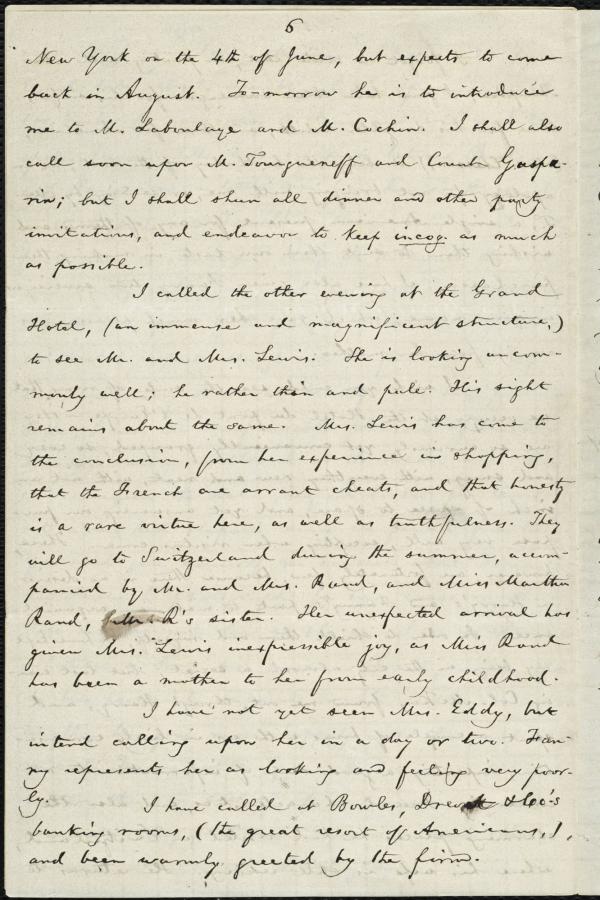 6
New York on the 4th of June, but expects to come
back in August. To-morrow he is to introduce
me to M. Laboulaye and M. Cochin. I shall also
call soon upon M. Tourgueneff and Count Gaspa-
rin; but I shall shun all dinner and other party
invitations, and endeavor to keep incog. as much
as possible.
I called the other evening at the Grand
Hotel, (an immense and magnificent structure,)
to see Mr. and Mrs. Lewis. She is looking uncom-
monly well; he rather thin and pale. His sight
remains about the same. Mrs. Lewis has come to
the conclusion, from her experience in shopping,
that the French are arrant cheats, and that honesty
is a rare virtue here, as well as truthfulness. They
will go to Switzerland during the summer, accom-
panied by Mr. and Mrs. Rand, and Miss Martha
Rand, Mr. R's sister. Her unexpected arrival has
given Mrs. Lewis inexpressible joy, as Miss Rand
has been a mother to her from early childhood.
I have not yet seen Mrs. Eddy, but
intend calling upon her in a day or two. Fan-
ny represents her as looking and feeling very poor-
ly.
I have called at Bowles, &Co's
banking rooms, (the great resort of Americans,),
and been warmly greeted by the firm.